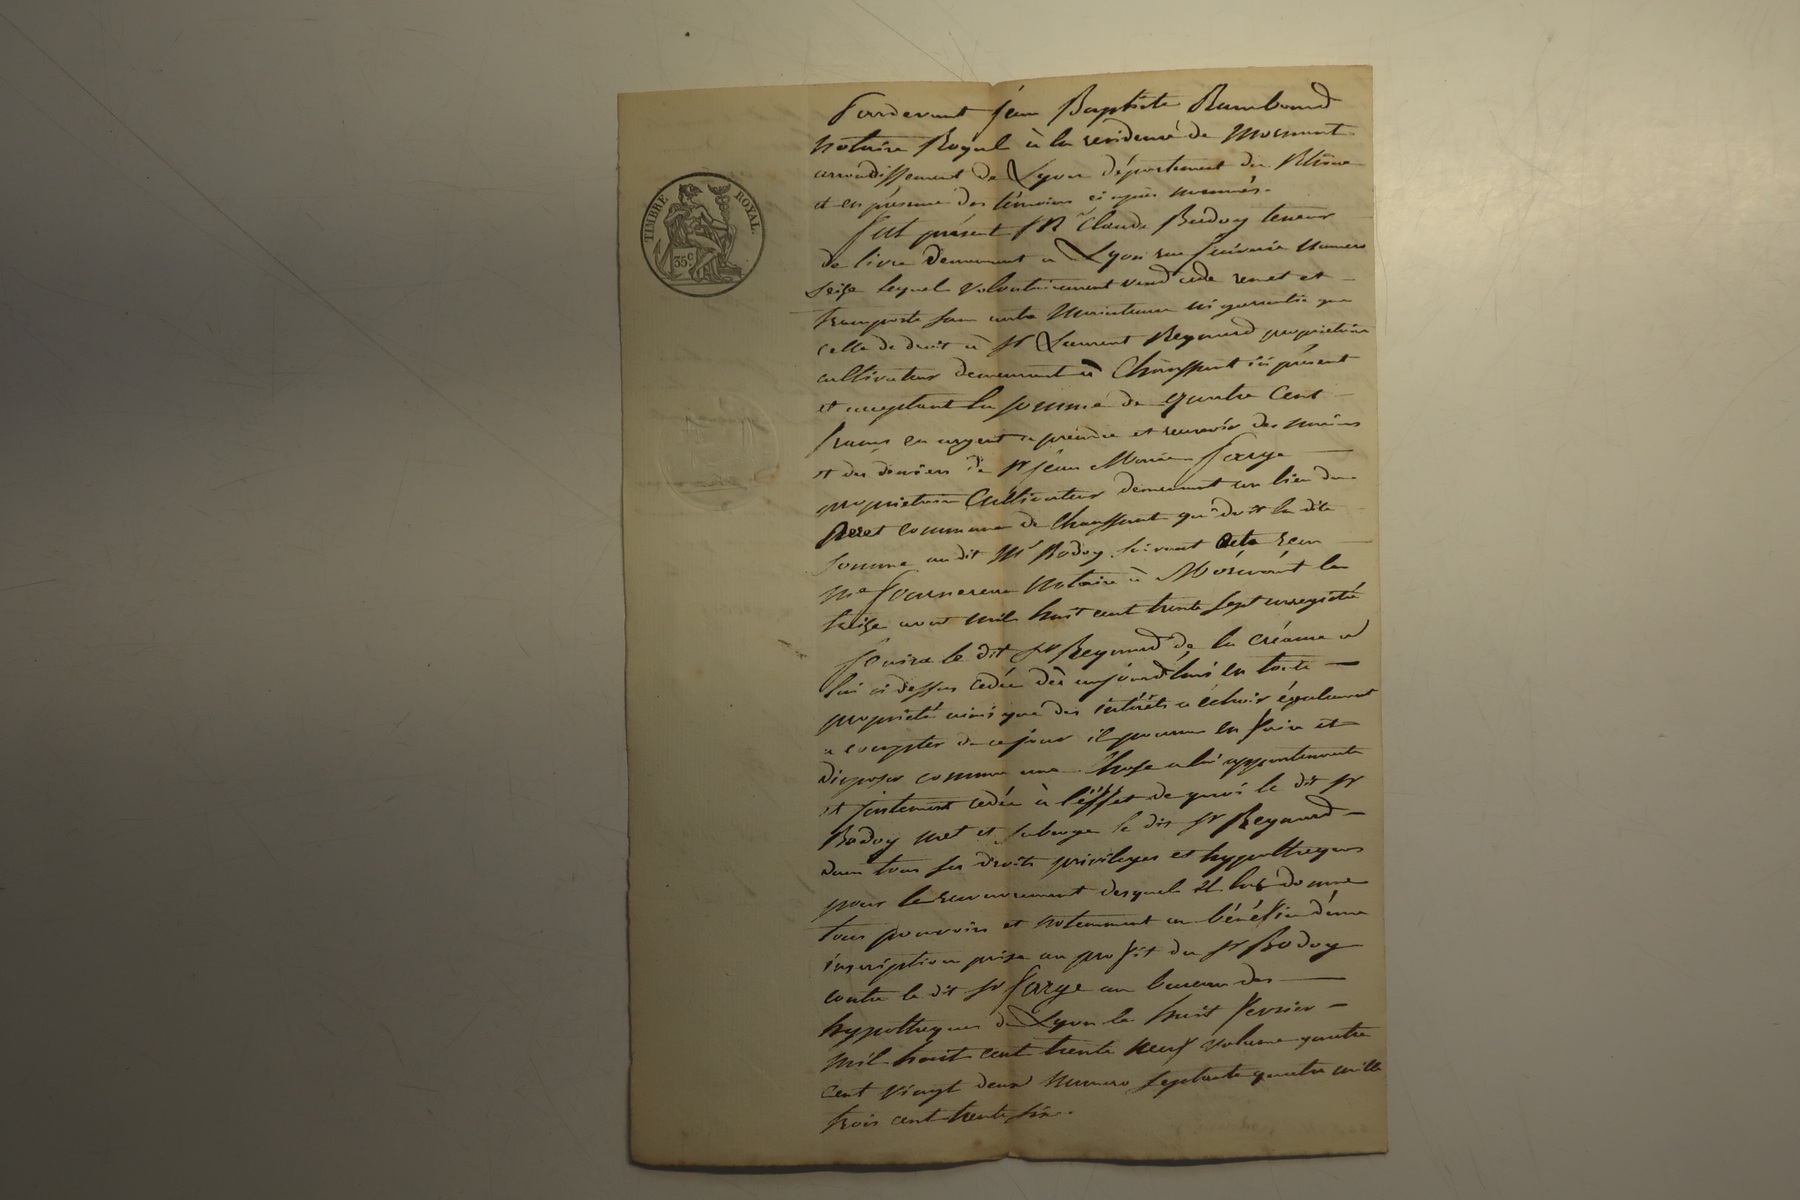 Pardevant jean Baptiste Rambaud
notaire Royal à la residence de Mornant
arrondissement de Lyon département du Rhône
et en présence des témoins ci après nommés.
TIMBRE ROYAL.
35 c.
fut présent Mr Claude Badoy teneur
de livre demeurant à Lyon rue numero
seize lequel volontairement vend cede remet et
transporte sans autre maintenue ni garantie que
celle de droit à Sr Laurent Reynard proprietaire
cultivateur demeurant à Chaussant ici présent
et acceptant la somme de quatre cent
francs en argent a prendre et recevoir des mains
et des deniers de Sr jean Marie Farge
proprietaire Cultivateur demeurant au lieu du
Peret commune de Chaussant qui doit la dite
somme au dit Mr Badoy suivant acte recu
Me notaire à Mornant le
seize aout mil huit cent trente sept enregistré
Jouira le dit Sr Reynard de la créance a
lui ci dessus cedée dès aujourd'hui en toute
propriété ainsi que des intérêts a échoir également
a compter de ce jour il pourra en faire et
disposer comme une chose a lui appartenante
et justement cedée à l'éffet de quoi le dit Sr
Badoy met et subroge le dit Sr Reynard
dans tous ses droits privileges et hypothegues
pour le recouvrement desquels il lui donne
tous pouvoirs et notamment au bénéfice d'une
inscription prise au profit du Sr Badoy
contre le dit Sr Farge au bureau des
hypothegues de Lyon le huit fevrier
mil huit cent trente neuf volume quatre
cent vingt deux numero septante quatre mille
trois cent trente six.